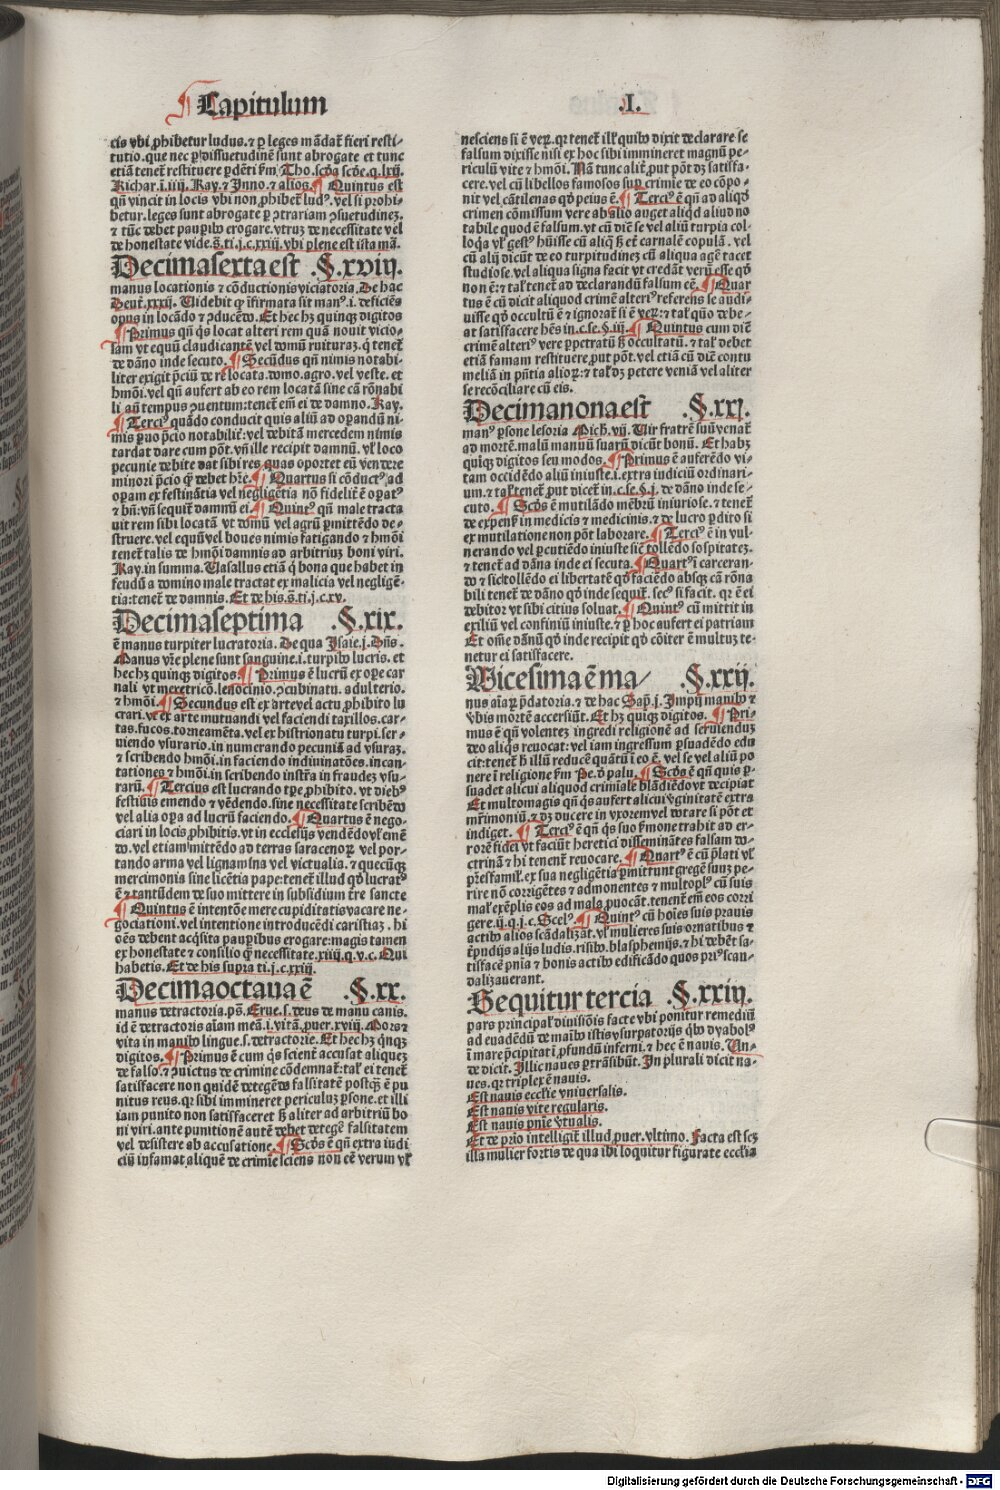 ¶ Capitulum .I.
cis vbi ꝓhibetur ludus. ⁊ ꝑ leges mādat̄ fieri resti-
tutio. que nec ꝑ dissuetudinē sunt abrogate et tunc
etiā tenet̄ restituere
Richar. i. iiij. Ray. ⁊ Inno. ⁊ alios. ¶ Quintus est
qn̄ vincit in locis vbi non ꝓhibet̄ ludꝰ. vel si prohi-
betur. leges sunt abrogate ꝑ ꝯtrariam ꝯsuetudinez.
⁊ tūc debet pauꝑibꝰ erogare. vtruꝫ de necessitate vel
de honestate vide. s̄. ti. j. c. xxiij. vbi plene est ista mā.
Decimasexta est .§. xviij.
manus locationis ⁊ cōductionis viciatoria. De hac
Deut. xxxij. Videbit ꝙ īfirmata sit manꝰ. i. deficiēs
opus in locādo ⁊ ꝯducēdo. Et hec hꝫ quinqꝫ digitos
¶ Primus qn̄ qͥs locat alteri rem quā nouit vicio-
sam vt equū claudicantē vel domū ruituraꝫ. ꝙ tenet̄
de dāno inde secuto. ¶ Secūdus qn̄ nimis notabi-
liter exigit p̄ciū de re locata. domo. agro. vel veste. et
hmōi. vel qn̄ aufert ab eo rem locatā sine cā rōnabi
li an̄ tempus ꝯuentum: tenet̄ em̄ ei de damno. Ray.
¶ Terciꝰ quādo conducit quis aliū ad oꝑandū ni-
mis ꝑuo p̄cio notabilit̄: vel debitā mercedem nimis
tardat dare cum pōt. vn̄ ille recipit damnū. vł loco
pecunie debite dat sibi res quas oportet eū vendere
minori p̄cio ꝙ debet hr̄e. ¶ Quartus si cōductꝰ ad
oꝑam ex festinātia vel negligētia nō fidelit̄ ē oꝑatꝰ
⁊ hm̄: vn̄ sequit̄ damnū ei. ¶ Quintꝰ qn̄ male tracta
uit rem sibi locatā vt domū vel agrū ꝑmittēdo de-
struere. vel equū vel boues nimis fatigando ⁊ hmōi
tenet̄ talis de hmōi damnis ad arbitriuꝫ boni viri.
Ray. in summa. Vasallus etiā ꝙ bona que habet in
feudū a domino male tractat ex malicia vel negligē-
tia: tenet̄ de damnis. Et de his. s̄. ti. j. c. xv.
Decimaseptima .§. xix.
ē manus turpiter lucratoria. De qua Isaie. j. Dn̄s.
Manus vr̄e plene sunt sanguine. i. turpibꝰ lucris. et
hec hꝫ quinqꝫ digitos. ¶ Primus ē lucrū ex oꝑe car
nali vt meretricō. lenocinio. ꝯcubinatu. adulterio.
⁊ hmōi. ¶ Secundus est ex arte vel actu ꝓhibito lu
crari. vt ex arte mutuandi vel faciendi taxillos. car-
tas. fucos. torneamēta. vel ex histrionatu turpi. ser-
uiendo vsurario. in numerando pecuniā ad vsuraꝫ.
⁊ scribendo hmōi. in faciendo indiuinatōes. incan-
tationes ⁊ hmōi. in scribendo instr̄a in fraudeꝫ vsu-
rarū. ¶ Tercius est lucrando tꝑe ꝓhibito. vt diebꝰ
festiuis emendo ⁊ vēdendo. sine necessitate scribēdo
vel alia oꝑa ad lucrū faciendo. ¶ Quartus ē nego-
ciari in locis ꝓhibitis. vt in ecclesijs vendēdo vł emē
do. vel etiam mittēdo ad terras saracenoꝝ vel por-
tando arma vel lignamīna vel victualia. ⁊ quecūqꝫ
mercimonia sine licētia pape: tenet̄ illud ꝙ lucratꝰ
ē ⁊ tantūdem de suo mittere in subsidium tr̄e sancte
¶ Quintus ē intentōe mere cupiditatis vacare ne-
gociationi. vel intentione introducēdi caristiaꝫ. hi
oēs debent acqͥsita pauꝑibus erogare: magis tamen
ex honestate ⁊ consilio ꝙ necessitate. xiiij. q. v. c. Qui
habetis. Et de his supra ti. j. c. xxiij.
Decimaoctaua ē .§. xx.
manus detractoria. ps̄. Erue. s. deus de manu canis.
id ē detractoris aīam meā. i. vitā. ꝓuer. xviij. Mors ⁊
vita in manibꝰ lingue. s. detractorie. Et hec hꝫ qͥnqꝫ
digitos. ¶ Primus ē cum qͥs scient̄ accusat aliqueꝫ
de falso. ⁊ ꝯuictus de crimine cōdemnat̄: tał ei tenet̄
satisfacere non quidē detegēdo falsitatē postqꝫ ē pu
nitus reus. qꝛ sibi immineret periculuꝫ ꝑsone. et illi
iam punito non satisfaceret sꝫ aliter ad arbitriū bo
ni viri. ante punitionē autē debet detegē falsitatem
vel desistere ab accusatione. ¶ Scd̄s ē qn̄ extra iudi
ciū infamat aliquē de crimīe sciens non eē verum vł
nesciens si ē veꝝ. qꝛ tenet̄ illꝭ quibꝰ dixit declarare se
falsum dixisse nisi ex hoc sibi immineret magnū pe-
riculū vite ⁊ hmōi. Nā tunc alit̄ put pōt dꝫ satisfa-
cere. vel cū libellos famosos suꝑ crimīe de eo cōpo-
nit vel cātilenas qd̄ peius ē. ¶ Terciꝰ ē qn̄ ad aliqd̄
crimen cōmissum vere ab alio auget aliqͥd aliud no
tabile quod ē falsum. vt cū diē se vel aliū turpia col-
loqͥa vł gestꝰ hūisse cū aliqͣ sꝫ et carnalē copulā. vel
cū alij dicūt de eo turpitudineꝫ cū aliqua agē tacet
studiose. vel aliqua signa facit vt credāt verū esse qd̄
non ē: ⁊ tał tenet̄ ad declarandū falsum eē. ¶ Quar
tus ē cū dicit aliquod crimē alteriꝰ referens se audi-
uisse qd̄ occultū ē ⁊ ignorat si ē veꝝ: ⁊ tał qͣuo debe-
at satisfacere hēs in. c. se. §. iij. ¶ Quintus cum diē
crimē alteriꝰ vere ꝑpetratū sꝫ occultatū. ⁊ tał debet
etiā famam restituere. put pōt. vel etiā cū diē contu
meliā in pn̄tia alioꝝ: ⁊ tał dꝫ petere veniā vel aliter
se recōciliare cū eis.
Decimanona est .§. xxj.
manꝰ ꝑsone lesoria Mich. vij. Vir fratrē suū venat̄
ad mortē. malū manuū suaꝝ dicūt bonū. Et habꝫ
quīqꝫ digitos seu modos. ¶ Primus ē auferēdo vi-
tam occidēdo aliū iniuste. i. extra iudiciū ordinari-
um. ⁊ tał tenet̄ put dicet̄ in. c. se. §. j. de dāno inde se-
cuto. ¶ Scd̄s ē mutilādo mēbrū iniuriose. ⁊ tenet̄
de expenꝭ in medicis ⁊ medicinis. ⁊ de lucro ꝑdito si
ex mutilatione non pōt laborare. ¶ Terciꝰ ē in vul-
nerando vel ꝑcutiēdo iniuste sic̄ tollēdo sospitateꝫ.
⁊ tenet̄ ad dāna inde ei secuta. ¶ Quartꝰ ī carceran-
do ⁊ sic tollēdo ei libertatē qd̄ faciēdo absqꝫ cā rōna
bili tenet̄ de dāno qd̄ inde sequit̄. secꝰ si facit. qꝛ ē ei
debitor vt sibi citius soluat. ¶ Quintꝰ cū mittit in
exiliū vel confiniū iniuste. ⁊ ꝑ hoc aufert ei patriam
Et om̄e dānū qd̄ inde recipit qd̄ cōiter ē multuꝫ te-
netur ei satisfacere.
Vicesima ē ma/ .§. xxij.
nus aīaꝝ p̄datoria. ⁊ de hac Sap̄. j. Impij manibꝰ ⁊
v̄bis mortē accersiūt. Et hꝫ quiqꝫ digitos. ¶ Pri-
mus ē qn̄ volenteꝫ ingredi religionē ad seruienduꝫ
deo aliqͥs reuocat: vel iam ingressum ꝑsuadēdo edu
cit: tenet̄ hͥ illū reducē quātū ī eo ē. vel se vel aliū po
nere ī religione ẜm Pe. d̄ palu. ¶ Scd̄s ē qn̄ quis ꝑ-
suadet alicui aliquod crimīale blādiēdo vt decipiat
Et multomagis qn̄ qͥs aufert alicui v̓ginitatē extra
mr̄imoniū. ⁊ dꝫ ducere in vxorem vel dotare si pōt et
indiget. ¶ Terciꝰ ē qn̄ qͥs suo ẜmone trahit ad er-
rorē fidei vt faciūt heretici disseminātes falsam do-
ctrinā ⁊ hi tenent̄ reuocare. ¶ Quartꝰ ē cū p̄lati vł
pr̄esfamił. ex sua negligētia ꝑmittunt gregē suuꝫ pe-
rire nō corrigētes ⁊ admonentes ⁊ multoplꝰ cū suis
mał exēplis eos ad mala ꝓuocāt. tenent̄ em̄ eos corri
gere. ij. q. j. c. Scelꝰ. ¶ Quintꝰ cū hoīes suis prauis
actibꝰ alios scādalizāt. vł mulieres suis ornatibus ⁊
tripudijs alijs ludis. risibꝰ. blasphemijs. ⁊ hi debēt sa-
tisfacē pn̄ia ⁊ bonis actibꝰ edificādo quos priꝰ scan-
dalizauerant.
Sequitur tercia .§. xxiij.
pars principał diuisiōis facte vbi ponitur remediū
ad euadēdū de maibꝰ istis vsurpatorijs qͥbꝰ dyabolꝰ
ī mare p̄cipitat ī ꝓfundū inferni. ⁊ hec ē nauis. Un-
de dicit. Illic naues ꝑtrāsibūt. In plurali dicit na-
ues. qꝛ triplex ē nauis.
Est nauis eccl̄ie vniuersalis.
Est nauis vite regularis.
Est nauis pn̄ie v̓tualis.
Et de prīo intelligit̄ illud ꝓuer. vltimo. Facta est sꝫ
illa mulier fortis de qua ibi loquitur figurate eccl̄ia
Digitalisierung gefördert durch die Deutsche Forschungsgemeinschaft - DFG